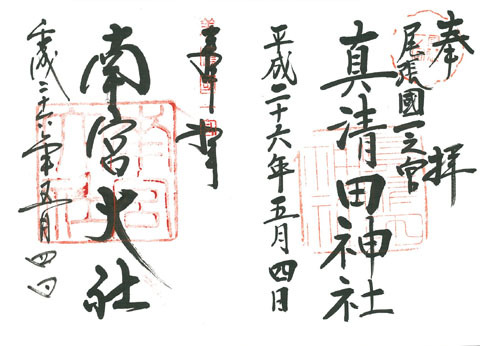 奉拝
尾張國一之宮
真清田神社
平成二十六年五月四日
奉拝
南宮大社
平成二十六年五月四日